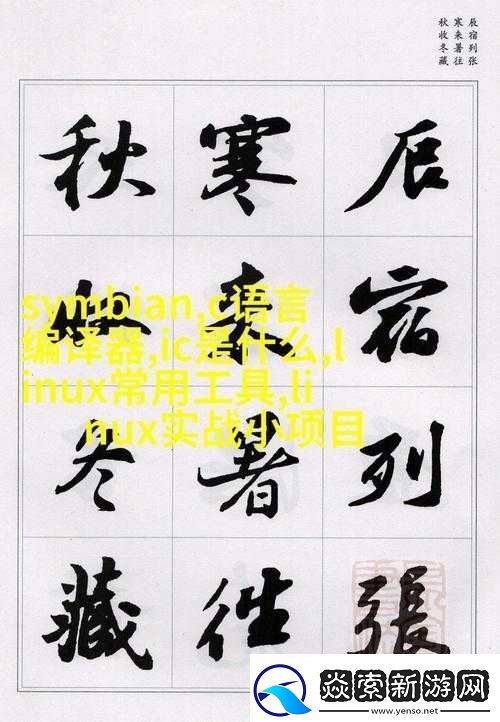 辰宿列张
寒来暑往
秋收冬藏
辰宿列張
寒来暑往
秋收冬藏
symbian,c语言
编译器,ic是什么,l
inux常用工具,li
nux实战小项目
焱索新游网
www.yenso.net